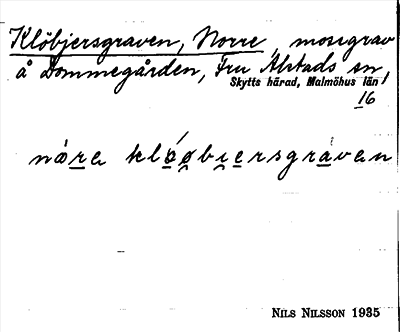 Klöbjersgraven, Norre, mossgrav
å Dommegården, Fru Alstads sn,
Skytts härad, Malmöhus län
16
nörra klöøbjersgraven
NILS NILSSON 1935